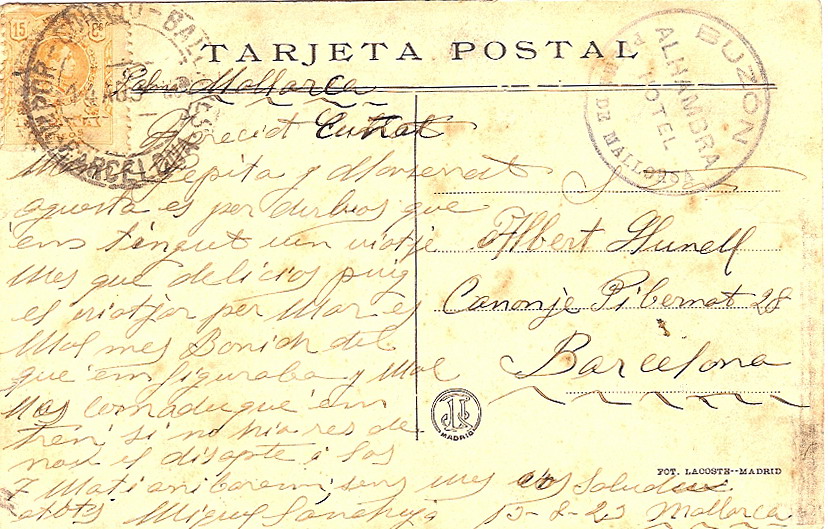 TARJETA POSTAL
15 Cs
AMBU
BARCELONA
BUZON
ALHAMBRA
HOTEL
DE MALLORCA
Palma Mallorca
Apreciat Cuñat
Pepita y Monserrat
aquesta es per dirbios que
em tingut un viatje
mes que delicios puig
el viatjar per Mar es
Mol mes Bonich del
que em figuraba y Mol
Mes comadu que em
tren si no hia res de
nou el disapte á las
7 Mati aniborem
mes os Saluda
a tots Miquel 15-8-23 Mallorca
Albert Llunell
Canonje Pibernat 28
Barcelona
MADRID
FOT. LACOSTE--MADRID